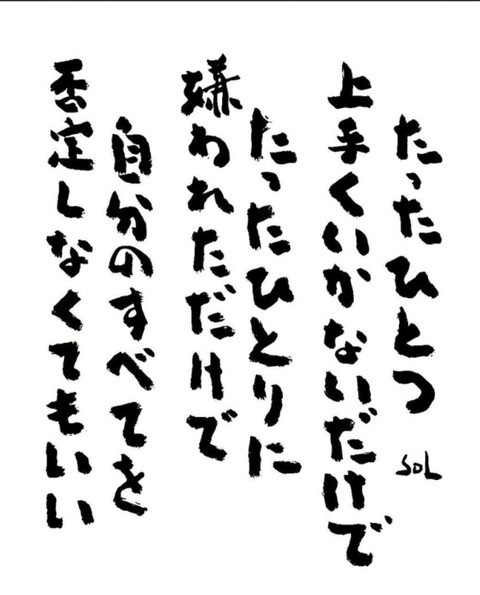 たったひとつ
上手くいかないだけで
たったひとりに
嫌われただけで
自分のすべてを
否定しなくてもいい
SOL